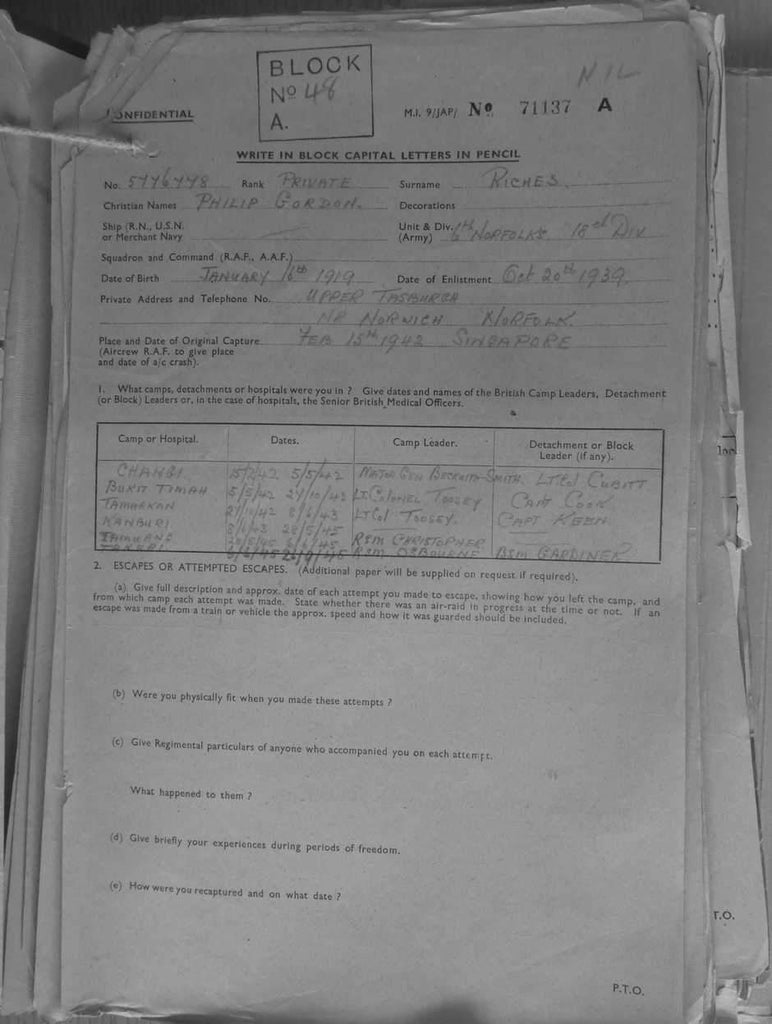 BLOCK
No 48
A.
NIL
CONFIDENTIAL
M.I. 9/JAP/ No. 71137 A
WRITE IN BLOCK CAPITAL LETTERS IN PENCIL
No. 5776778 Rank PRIVATE Surname RICHES.
Christian Names PHILIP GORDON. Decorations
Ship (R.N., U.S.N. or Merchant Navy
Unit & Div. (Army) 6th NORFOLKS 18th DIV
Squadron and Command (R.A.F., A.A.F.)
Date of Birth JANUARY 16th 1919 Date of Enlistment Oct 20th 1939.
Private Address and Telephone No. UPPER TASBURGH
NR NORWICH NORFOLK.
Place and Date of Original Capture. FEB 15TH 1942 SINGAPORE
(Aircrew R.A.F. to give place
and date of a/c crash).
1. What camps, detachments or hospitals were you in ? Give dates and names of the British Camp Leaders, Detachment
(or Block) Leaders or, in the case of hospitals, the Senior British Medical Officers.
Camp or Hospital. Dates. Camp Leader. Detachment or Block Leader (if any).
CHANGI. 15/2/42 5/5/42 MAJOR GEN BECKWITH-SMITH. LT COL CUBITT
BUKIT TIMAH 5/5/42 27/10/42 LT COLONEL TOOSEY CAPT COOK
TAMARKAN 27/10/42 8/6/43 LT Col TOOSEY. CAPT KEEN
KANBURI 8/6/43 28/5/45 RSM CHRISTOPHER
TAMUANG 28/5/45 6/6/45 RSM OSBOURNE BSM GARDINER
2. ESCAPES OR ATTEMPTED ESCAPES. (Additional paper will be supplied on request if required).
(a) Give full description and approx. date of each attempt you made to escape, showing how you left the camp, and
from which camp each attempt was made. State whether there was an air-raid in progress at the time or not. If an
escape was made from a train or vehicle the approx. speed and how it was guarded should be included.
(b) Were you physically fit when you made these attempts ?
(c) Give Regimental particulars of anyone who accompanied you on each attempt.
What happened to them ?
(d) Give briefly your experiences during periods of freedom.
(e) How were you recaptured and on what date ?
P.T.O.
T.O.